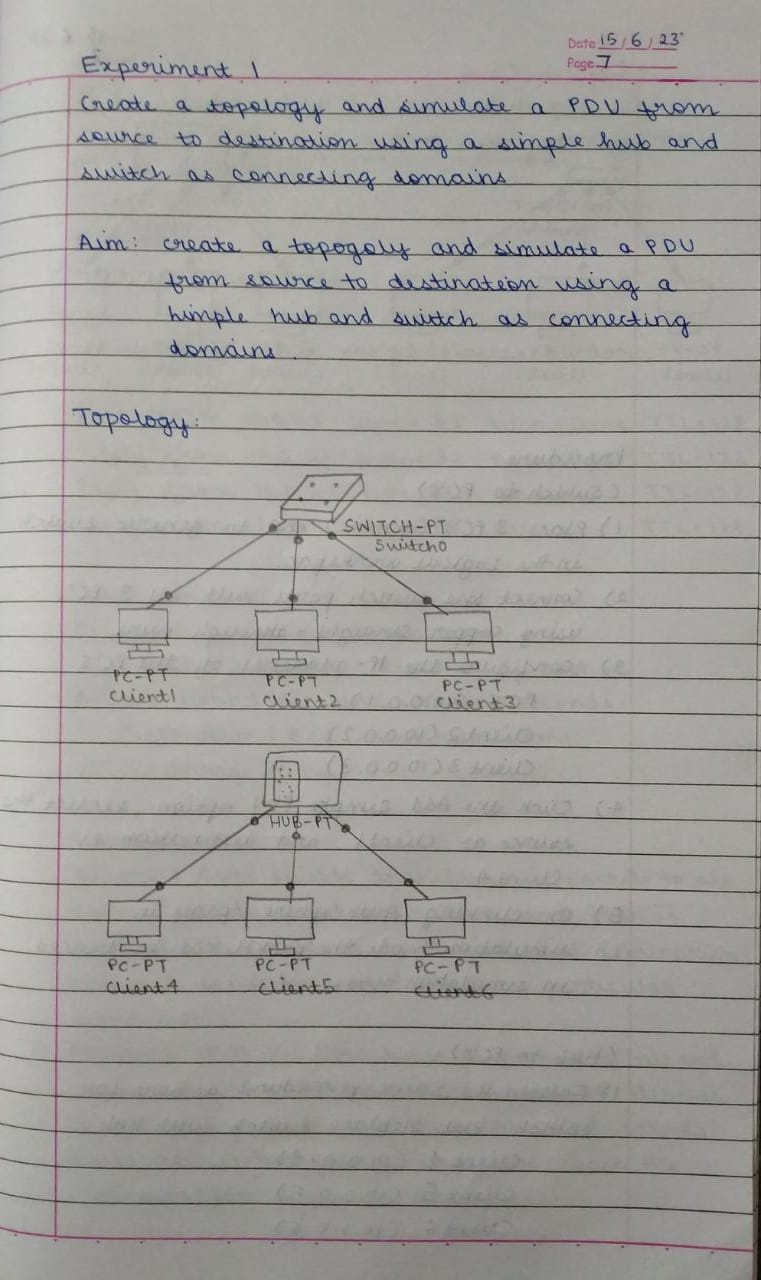 Date 15 / 6 / 23
Page 7
Experiment 1
Create a topology and simulate a PDU from
source to destination using a simple hub and
switch as connecting domains
Aim: create a topogoly and simulate a PDU
from source to destination using a
himple hub and switch as connecting
domains.
Topology:
SWITCH-PT
Switch0
PC-PT PC-PT PC-PT
Client1 Client2 Client3
HUB-PT
PC-PT PC-PT PC-PT
Client4 Client5 Client6